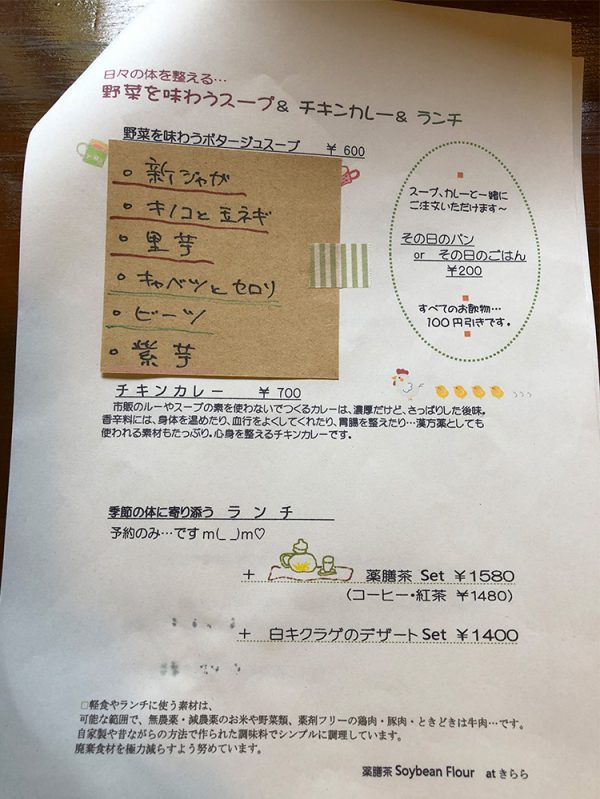 日々の体を整える…
野菜を味わうスープ& チキンカレー& ランチ
野菜を味わうポタージュスープ ¥ 600
。新ジャガ
。キノコと玉ネギ
。里芋
。キャベツとセロリ
。ビーツ
。紫芋
スープ、カレーと一緒に
ご注文いただけます～
その日のパン
or その日のごはん
¥200
すべてのお飲物…
100円引きです。
チキンカレー ¥ 700
市販のルーやスープの素を使わないでつくるカレーは、濃厚だけど、さっぱりした後味。
香辛料には、身体を温めたり、血行をよくしてくれたり、胃腸を整えたり…漢方薬としても
使われる素材もたっぷり。心身を整えるチキンカレーです。
季節の体に寄り添う ランチ
予約のみ…ですm(_ _)m♡
+ 薬膳茶 Set ¥1580
(コーヒー・紅茶 ¥1480)
+ 白キクラゲのデザート Set ¥1400
□軽食やランチに使う素材は、
可能な範囲で、無農薬・減農薬のお米や野菜類、薬剤フリーの鶏肉・豚肉・ときどきは牛肉…です。
自家製や昔ながらの方法で作られた調味料でシンプルに調理しています。
廃棄食材を極力減らすよう努めています。
薬膳茶 Soybean Flour at きらら